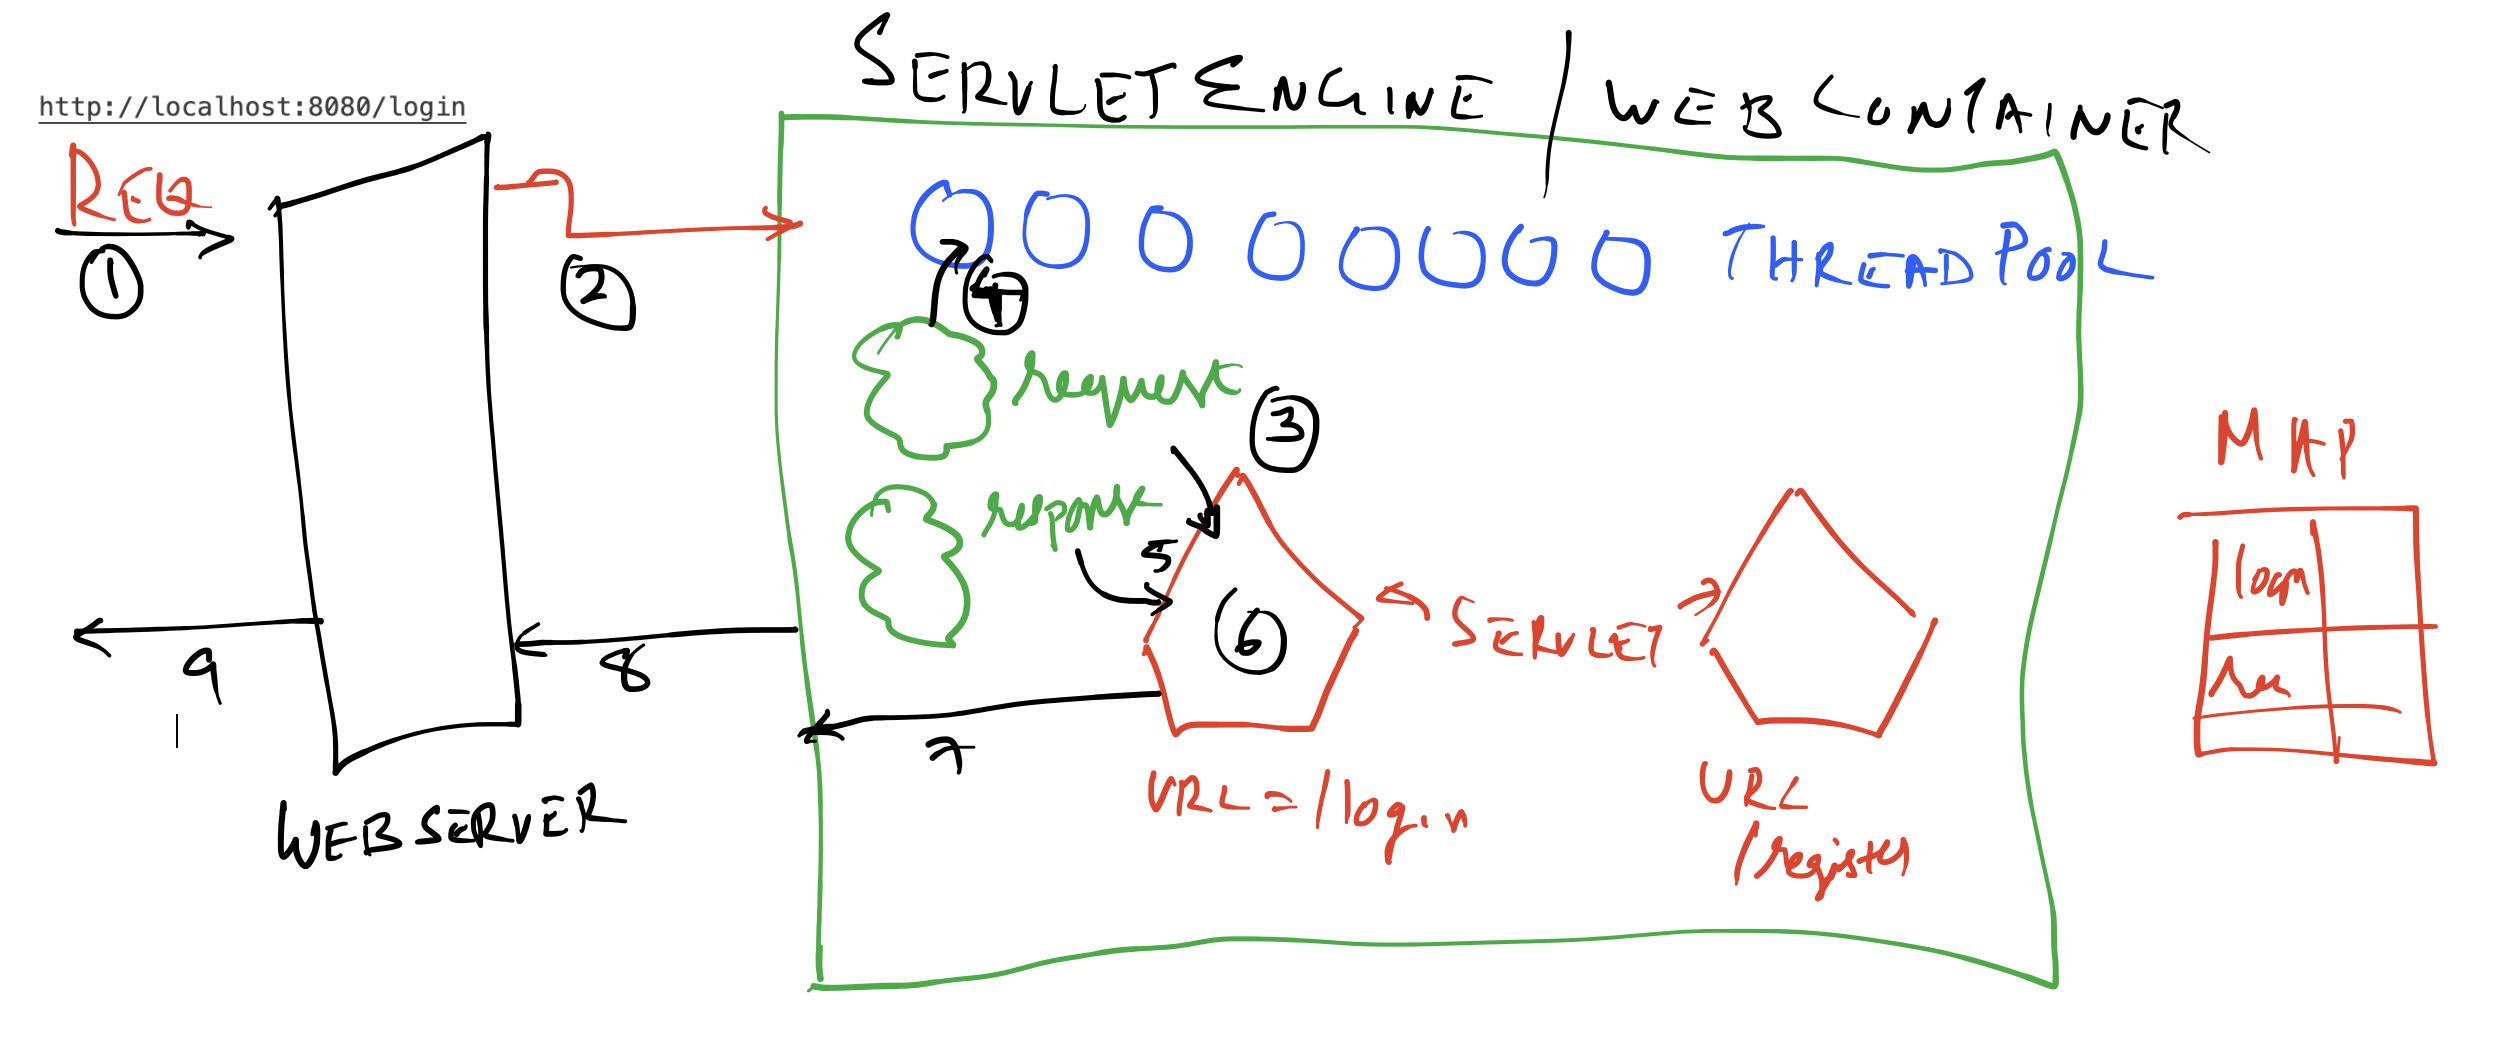 SERVLET ENGINE / WEB CONTAINER
http://localhost:8080/login
REQ
1
2
THREADPOOL
4
request
3
MAP
response
5
SERVLET
6
9
8
7
URL = /login
URL
/register
WEB SERVER